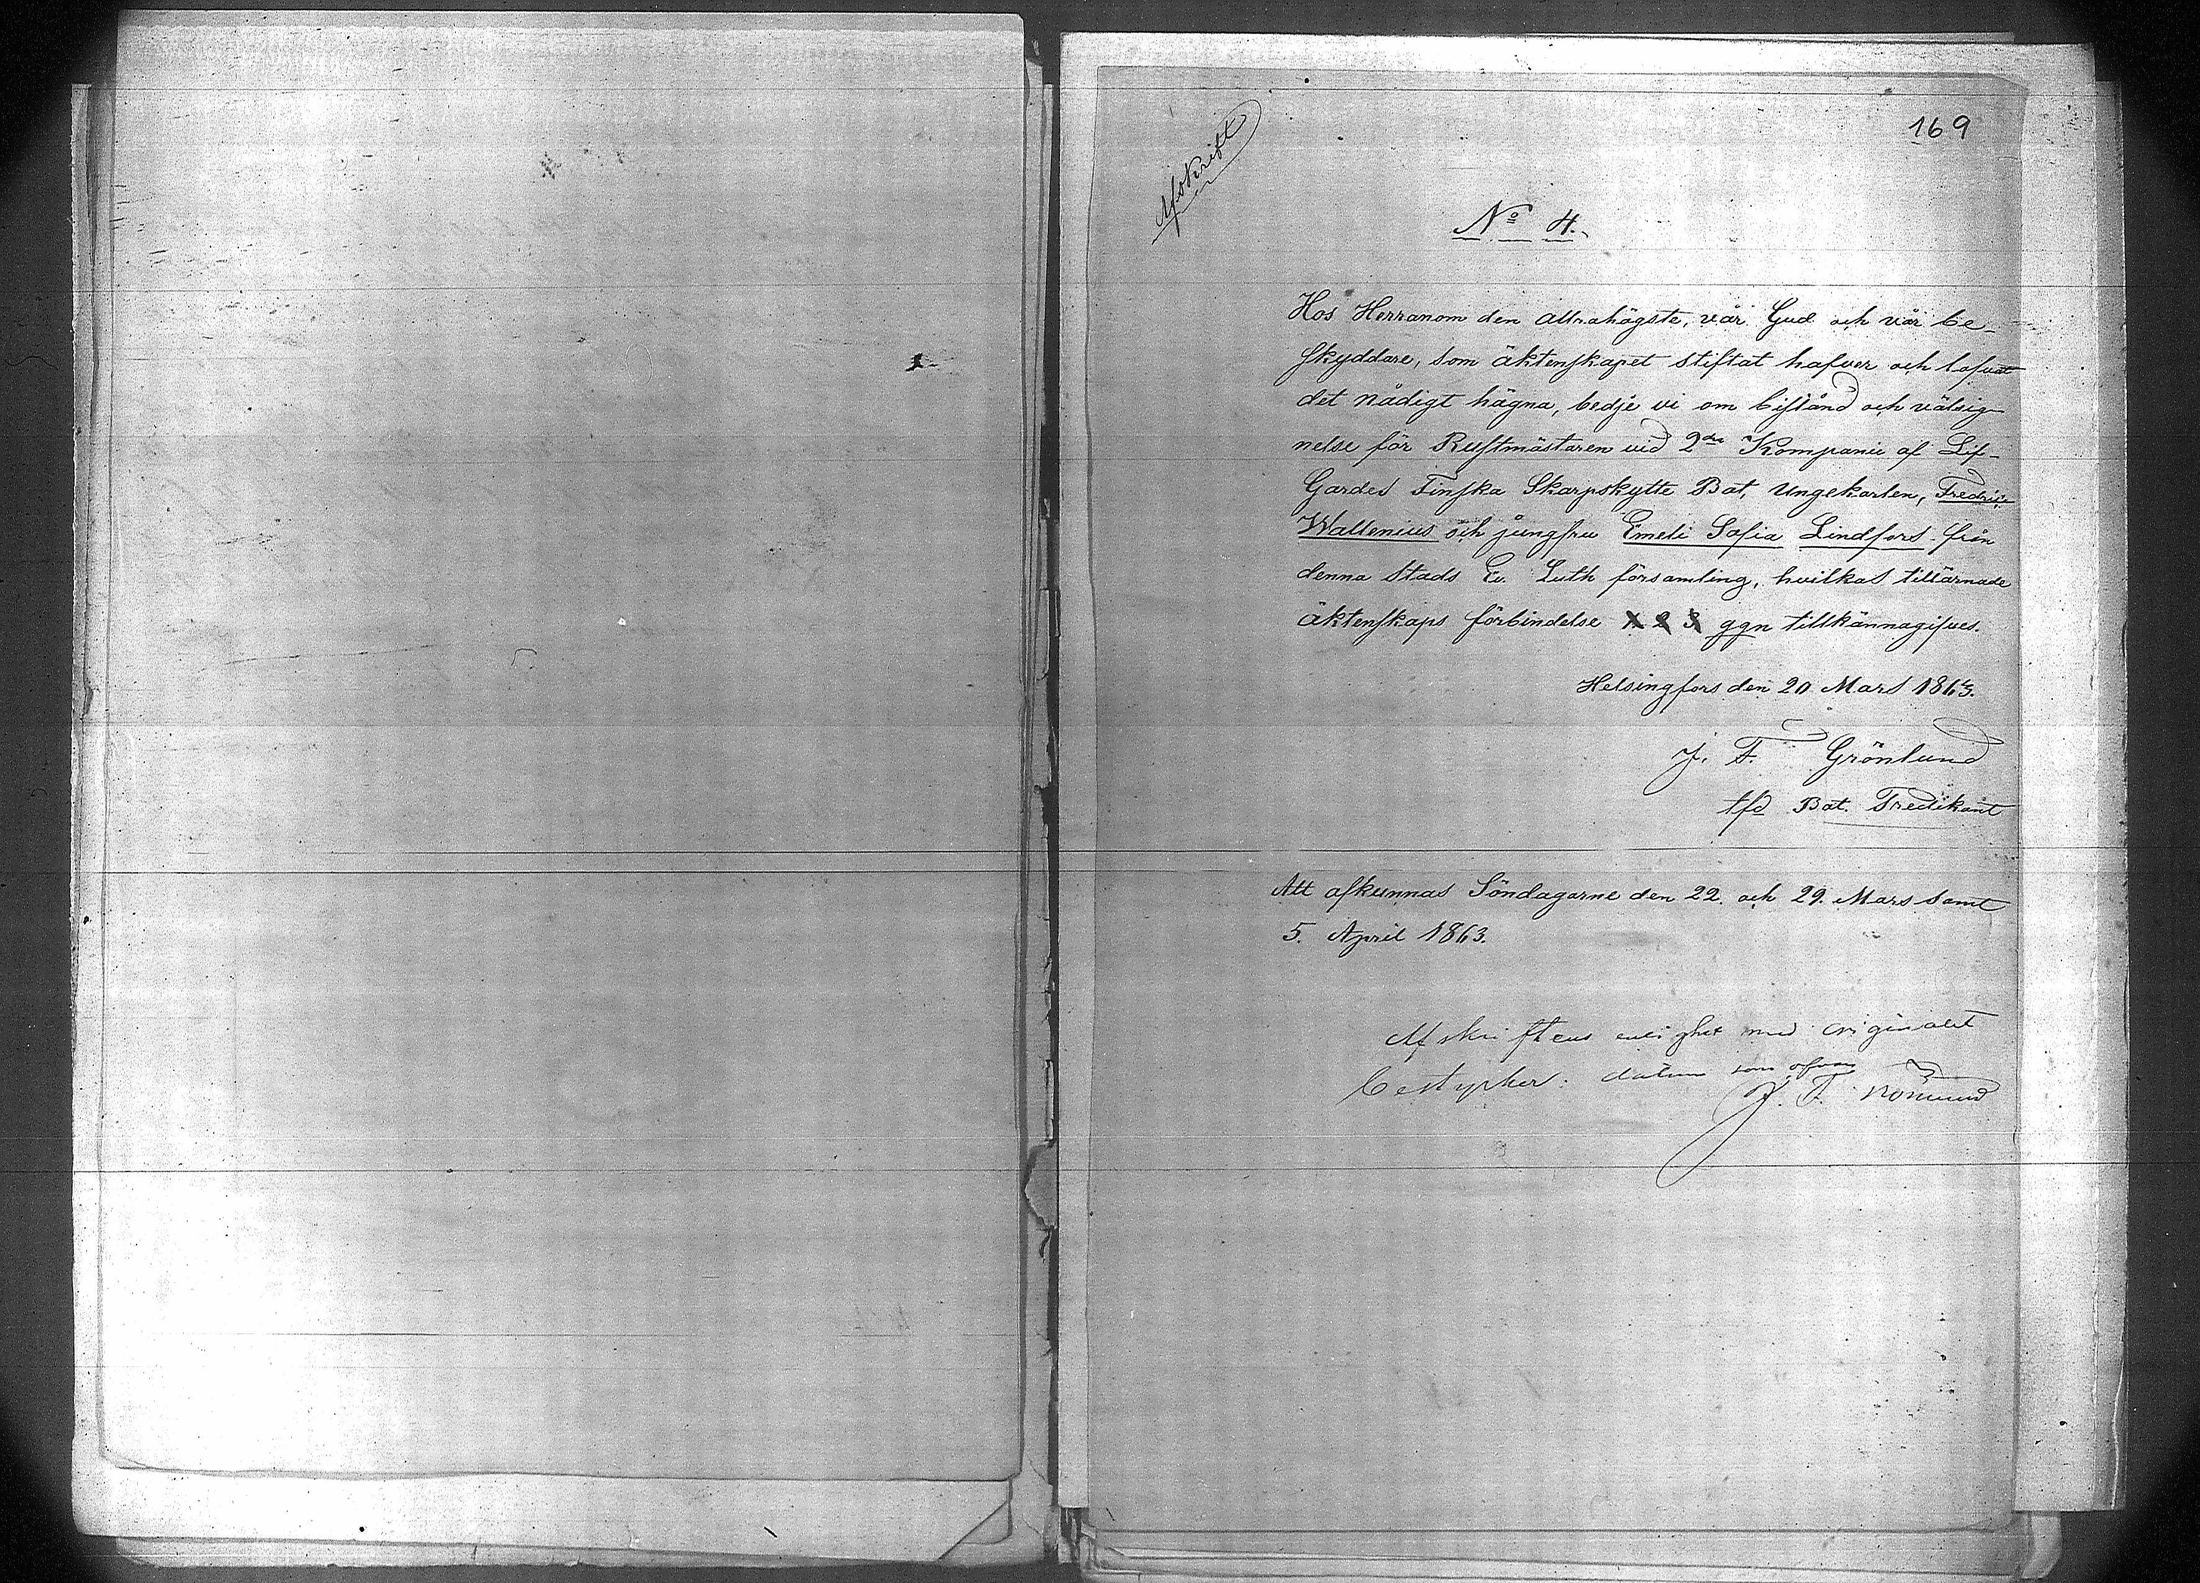 169
Afskrift
No 4.
Hos Herranom den Allrahögste, vår Gud och vår be-
skyddare, som äktenskapet stiftat hafver och lofvat
det nådigt hägna, bedje vi om bistånd och välsig-
nelse för Rustmästaren vid 2dra Kompanie af Lif-
Gardes Finska Skarpskytte Bat, Ungekarlen, Fredric
Wallenius och jungfru Emeli Sofia Lindfors från
denna Stads Ev. Luth församling, hvilkas tillärnade
äktenskaps förbindelse 1 2 3 ggn tillkännagifves.
Helsingfors den 20 Mars 1863.
J. F. Grönlund
tfd Bat. Predikant
Att afkunnas Söndagarne den 22. och 29. Mars samt
5. April 1863.
Afskriftens enlighet med originalet
bestyrker: datum som ofvan
J. F. Grönlund